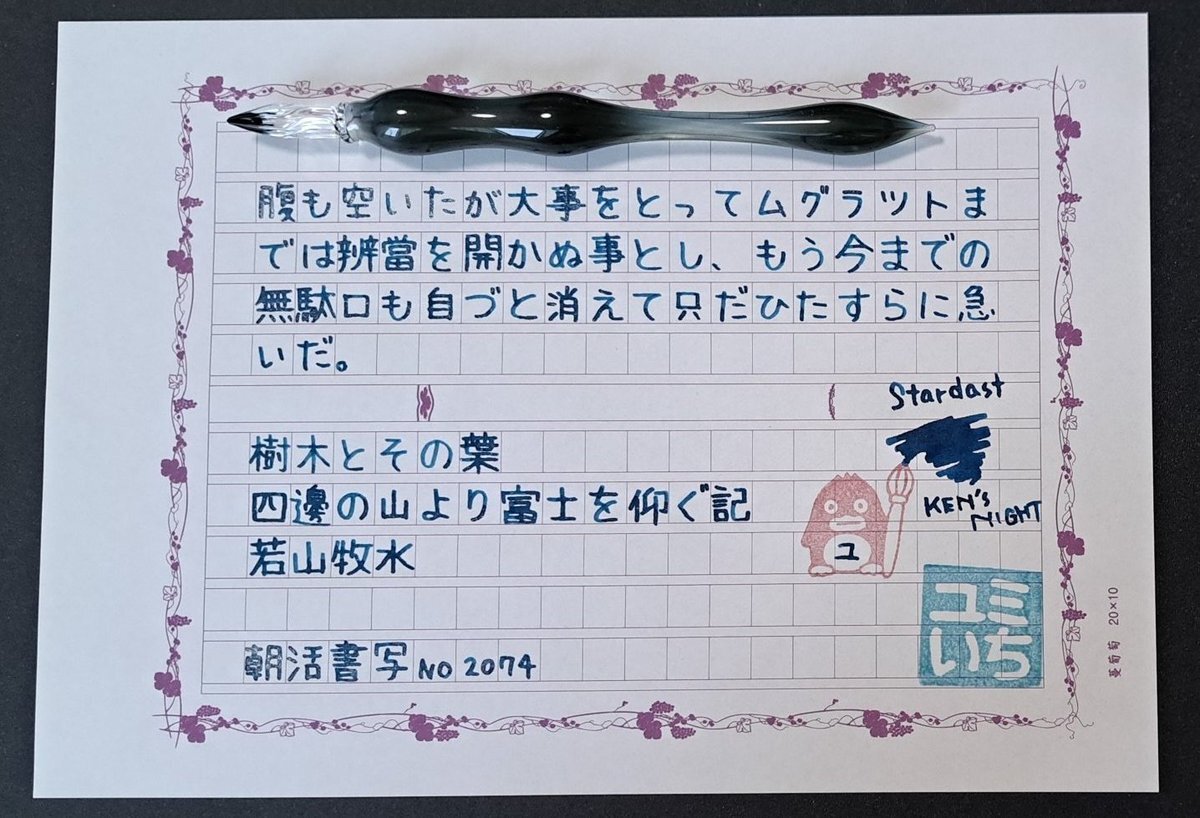 腹も空いたが大事をとってムグラツトま
では辨當を開かぬ事とし、もう今までの
無駄口も自づと消えて只だひたすらに急
いだ。
Stardast
樹木とその葉
四邊の山より富士を仰ぐ記
KEN's
NIGHT
若山牧水
ユ
ユミ
いち
朝活書写 NO 2074
蔓葡萄 20×10